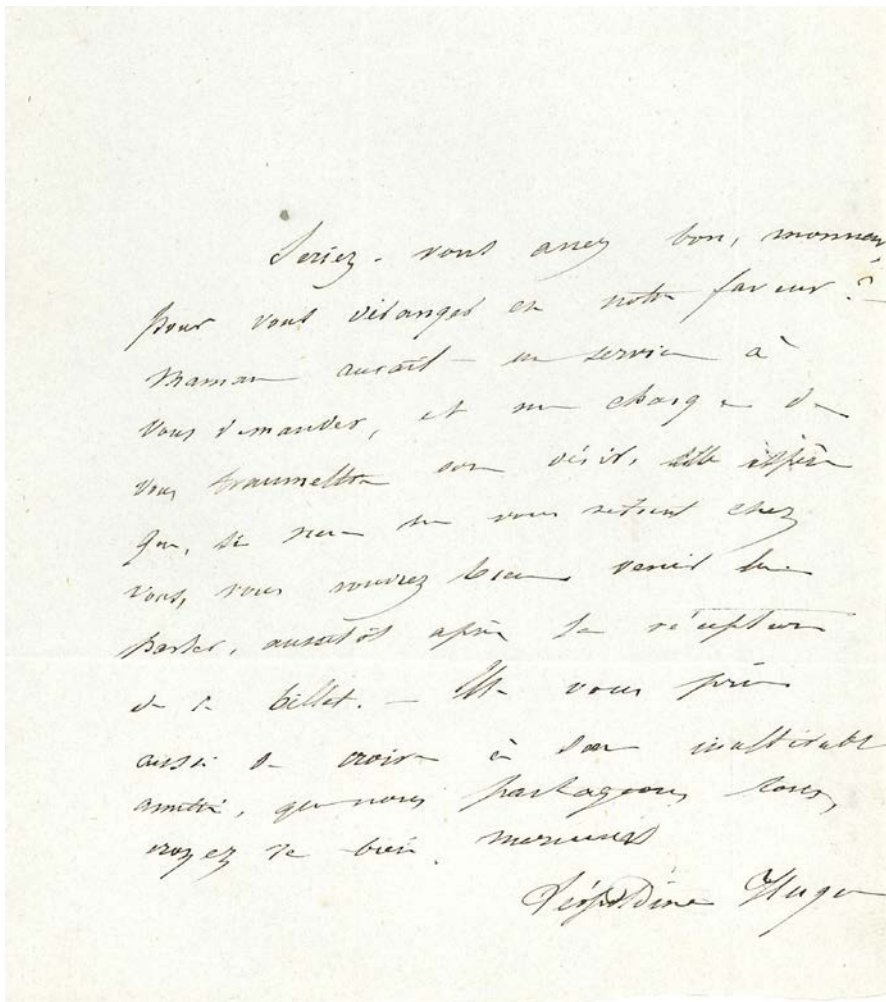 Seriez-vous assez bon, monsieur,
pour vous déranger en notre faveur ?
Maman aurait un service à
vous demander, et me charge de
vous transmettre son désir. Elle espère
que, si rien ne vous retient chez
vous, vous voudrez bien venir lui
parler, aussitôt après la réception
de ce billet. — Elle vous prie
aussi de croire à son inaltérable
amitié, que nous partageons tous,
croyez le bien, monsieur
Léopoldine Hugo